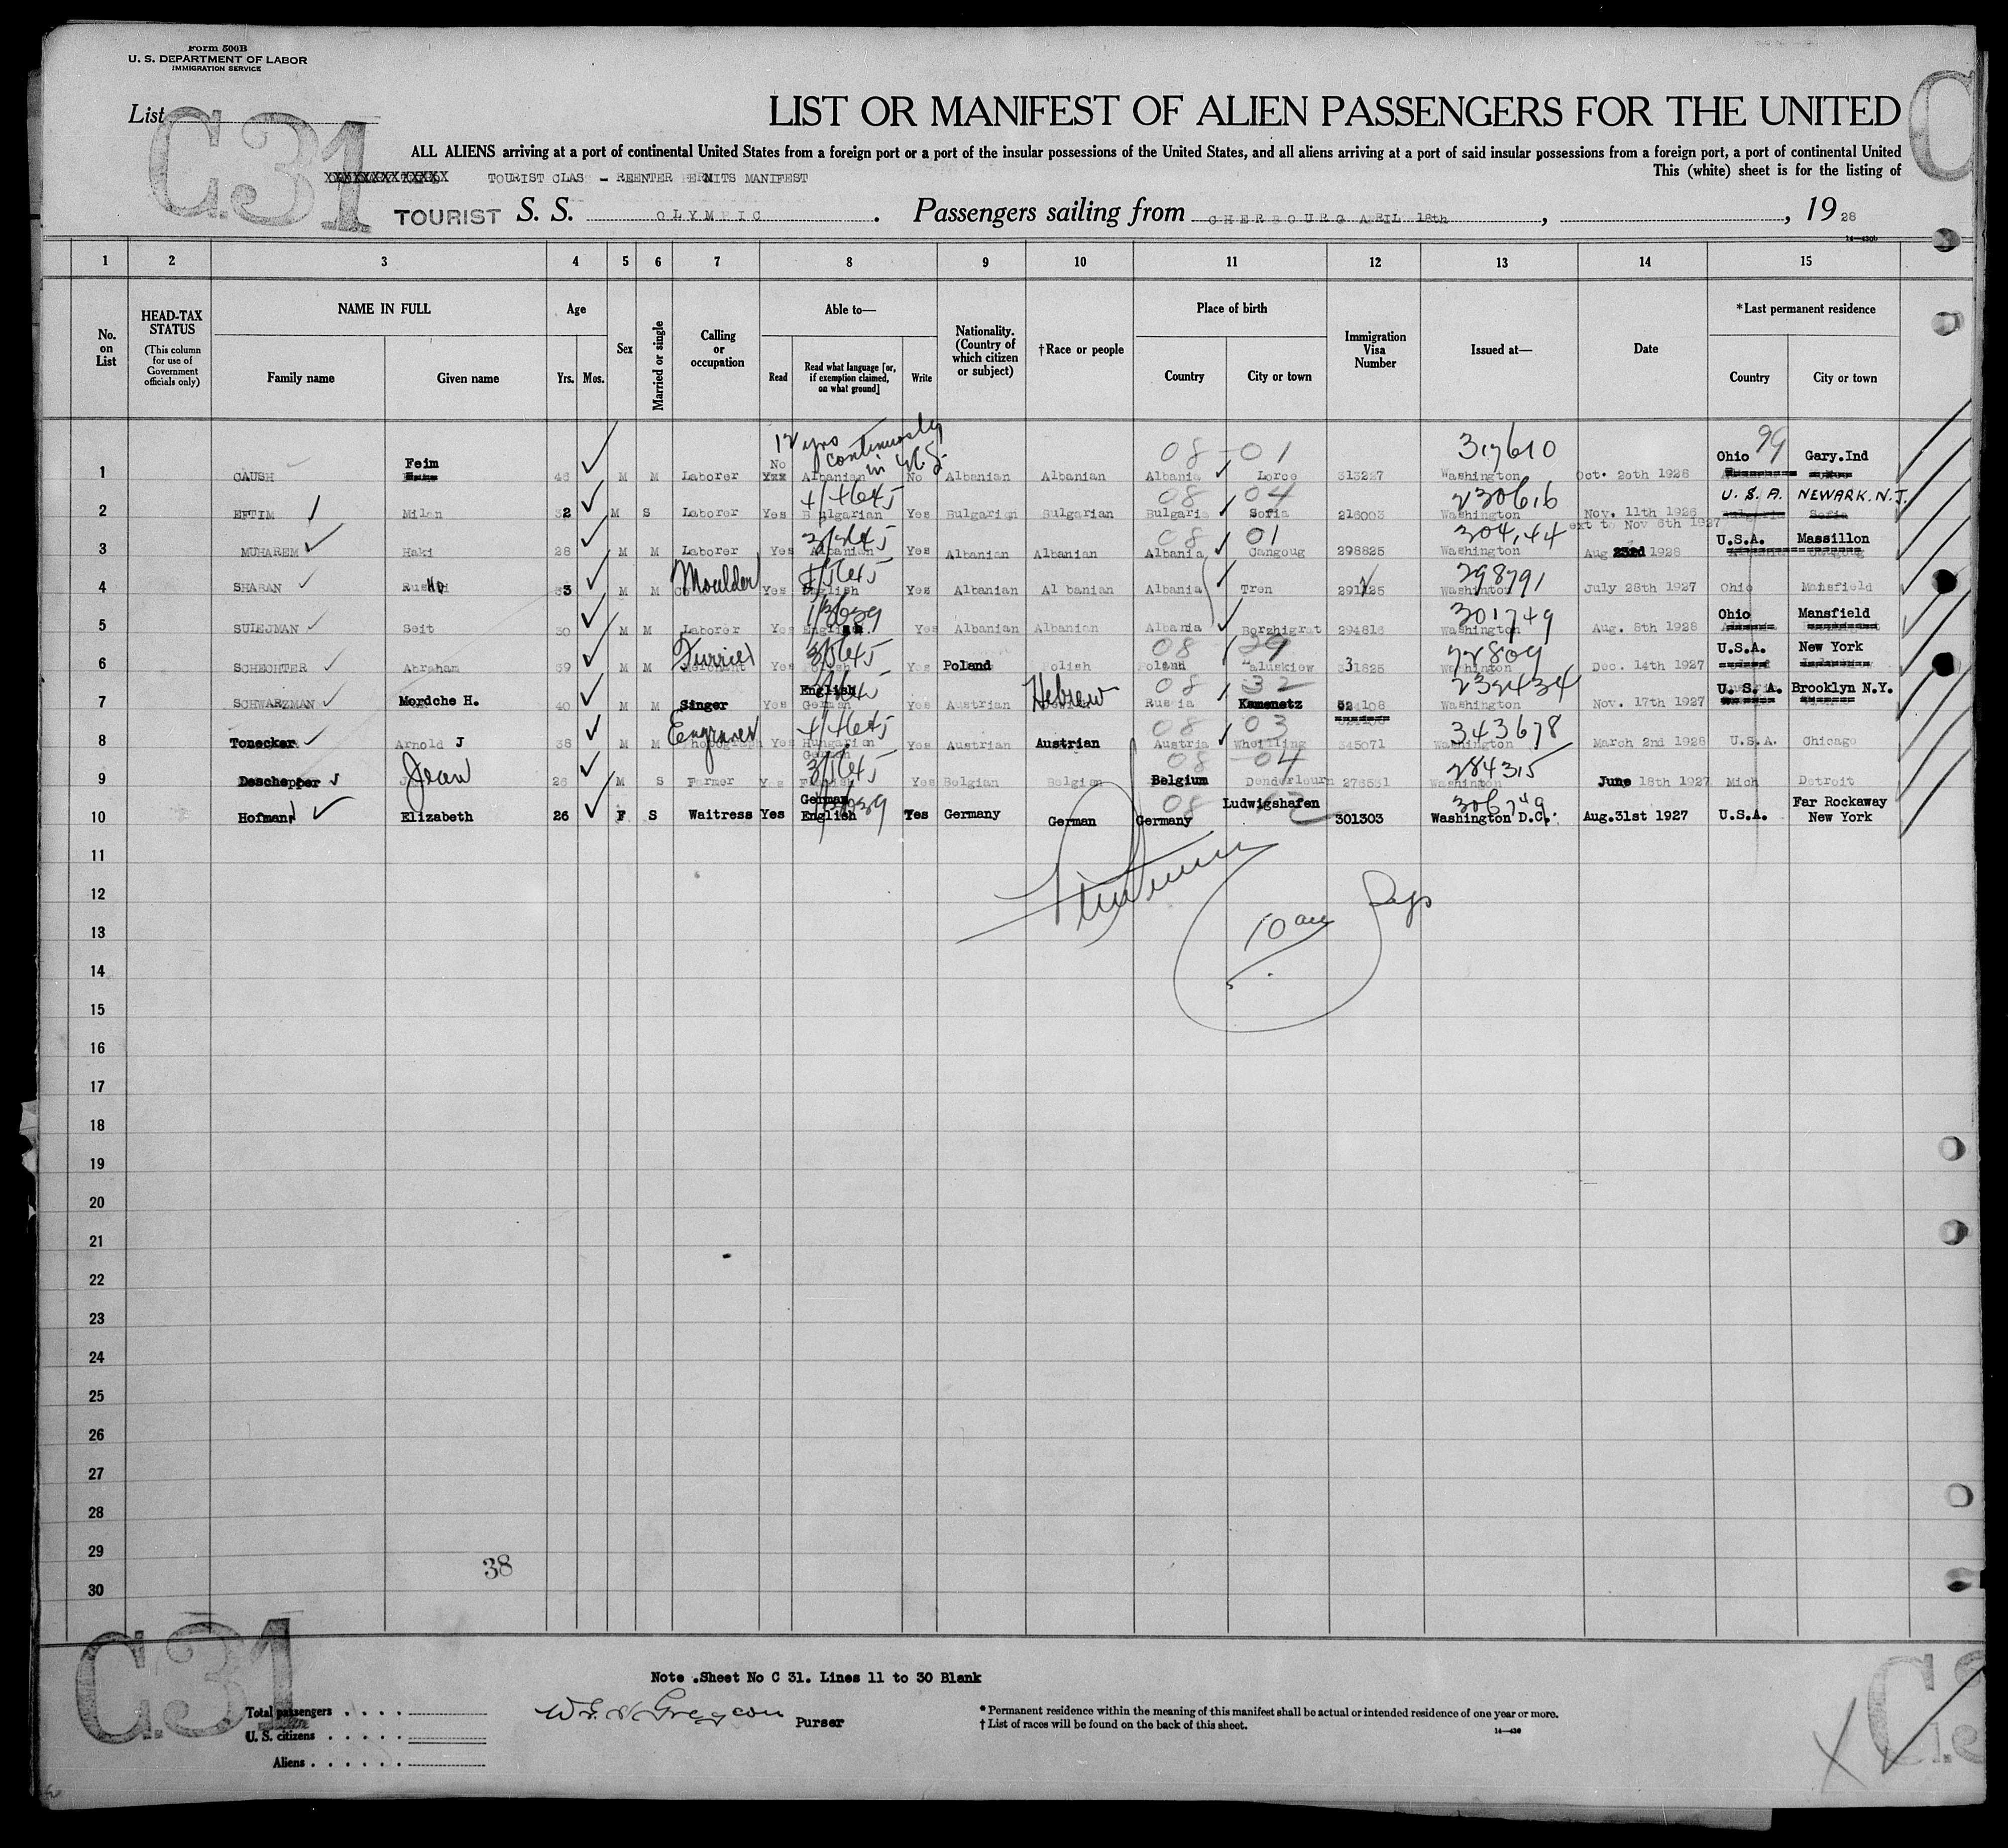 Form 500B
U. S. DEPARTMENT OF LABOR
IMMIGRATION SERVICE
List
C.31
LIST OR MANIFEST OF ALIEN PASSENGERS FOR THE UNITED
ALL ALIENS arriving at a port of continental United States from a foreign port or a port of the insular possessions of the United States, and all aliens arriving at a port of said insular possessions from a foreign port, a port of continental United
TOURIST CLAS – REENTER PERMITS MANIFEST
This (white) sheet is for the listing of
TOURIST S. S. OLYMPIC. Passengers sailing from CHERBOURG APRIL 18th, , 19 28
14—430b
1 2 3 4 5 6 7 8 9 10 11 12 13 14 15
No. on List
HEAD-TAX STATUS (This column for use of Government officials only)
NAME IN FULL
Family name Given name
Age Yrs. Mos.
Sex
Married or single
Calling or occupation
Able to—
Read Read what language [or, if exemption claimed, on what ground] Write
Nationality. (Country of which citizen or subject)
†Race or people
Place of birth
Country City or town
Immigration Visa Number
Issued at—
Date
*Last permanent residence
Country City or town
12 yrs continuously in U.S.
08 - 01 317610 99
Feim Ohio Gary.Ind
1 CAUSH M M Laborer No Albanian No Albanian Albanian Albania Lorce 313227 Washington Oct. 20th 1926
08 04 230616 U. S. A. NEWARK. N.J.
2 EFTIM Milan 32 M S Laborer Yes Bulgarian Yes Bulgarian Bulgarian Bulgaria Sofia 216003 Washington Nov. 11th 1926
ext to Nov 6th 1927
08 01 304,44 U.S.A. Massillon
3 MUHAREM Haki 28 M M Laborer Yes Albanian Yes Albanian Albanian Albania Cangoug 298825 Washington Aug 23d 1928
298791
4 SHABAN 33 M M Moulder Yes English Yes Albanian Albanian Albania Tren 291125 Washington July 28th 1927 Ohio Mansfield
301749 Ohio Mansfield
5 SULEJMAN Seit 30 M M Laborer Yes English Yes Albanian Albanian Albania Borzhigrat 294816 Washington Aug. 8th 1928
08 29 U.S.A. New York
6 SCHECHTER Abraham 39 M M Furrier Yes Yes Poland Polish Poland 331825 Washington Dec. 14th 1927
English 08 32 232434 U. S. A. Brooklyn N.Y.
7 SCHWARZMAN Mordche H. 40 M M Singer Yes German Yes Austrian Hebrew Russia Kamenetz 324108 Washington Nov. 17th 1927
08 03 343678
8 Tonecker Arnold J 38 M M Engraver Yes Hungarian German Yes Austrian Austrian Austria 345071 Washington March 2nd 1928 U.S.A. Chicago
08 04 284315
9 Deschepper Jean 26 M S Farmer Yes Yes Belgian Belgian Belgium 276531 Washington June 18th 1927 Mich Detroit
German 08 Ludwigshafen 306749 Far Rockaway
10 Hofmann Elizabeth 26 F S Waitress Yes English Yes Germany German Germany 301303 Washington D.C. Aug.31st 1927 U.S.A. New York
11
12
13
14
15
16
17
18
19
20
21
22
23
24
25
26
27
28
29
30
38
C.31
Note .Sheet No C 31. Lines 11 to 30 Blank
Total passengers
U. S. citizens
Aliens
Purser
* Permanent residence within the meaning of this manifest shall be actual or intended residence of one year or more.
† List of races will be found on the back of this sheet.
14—430